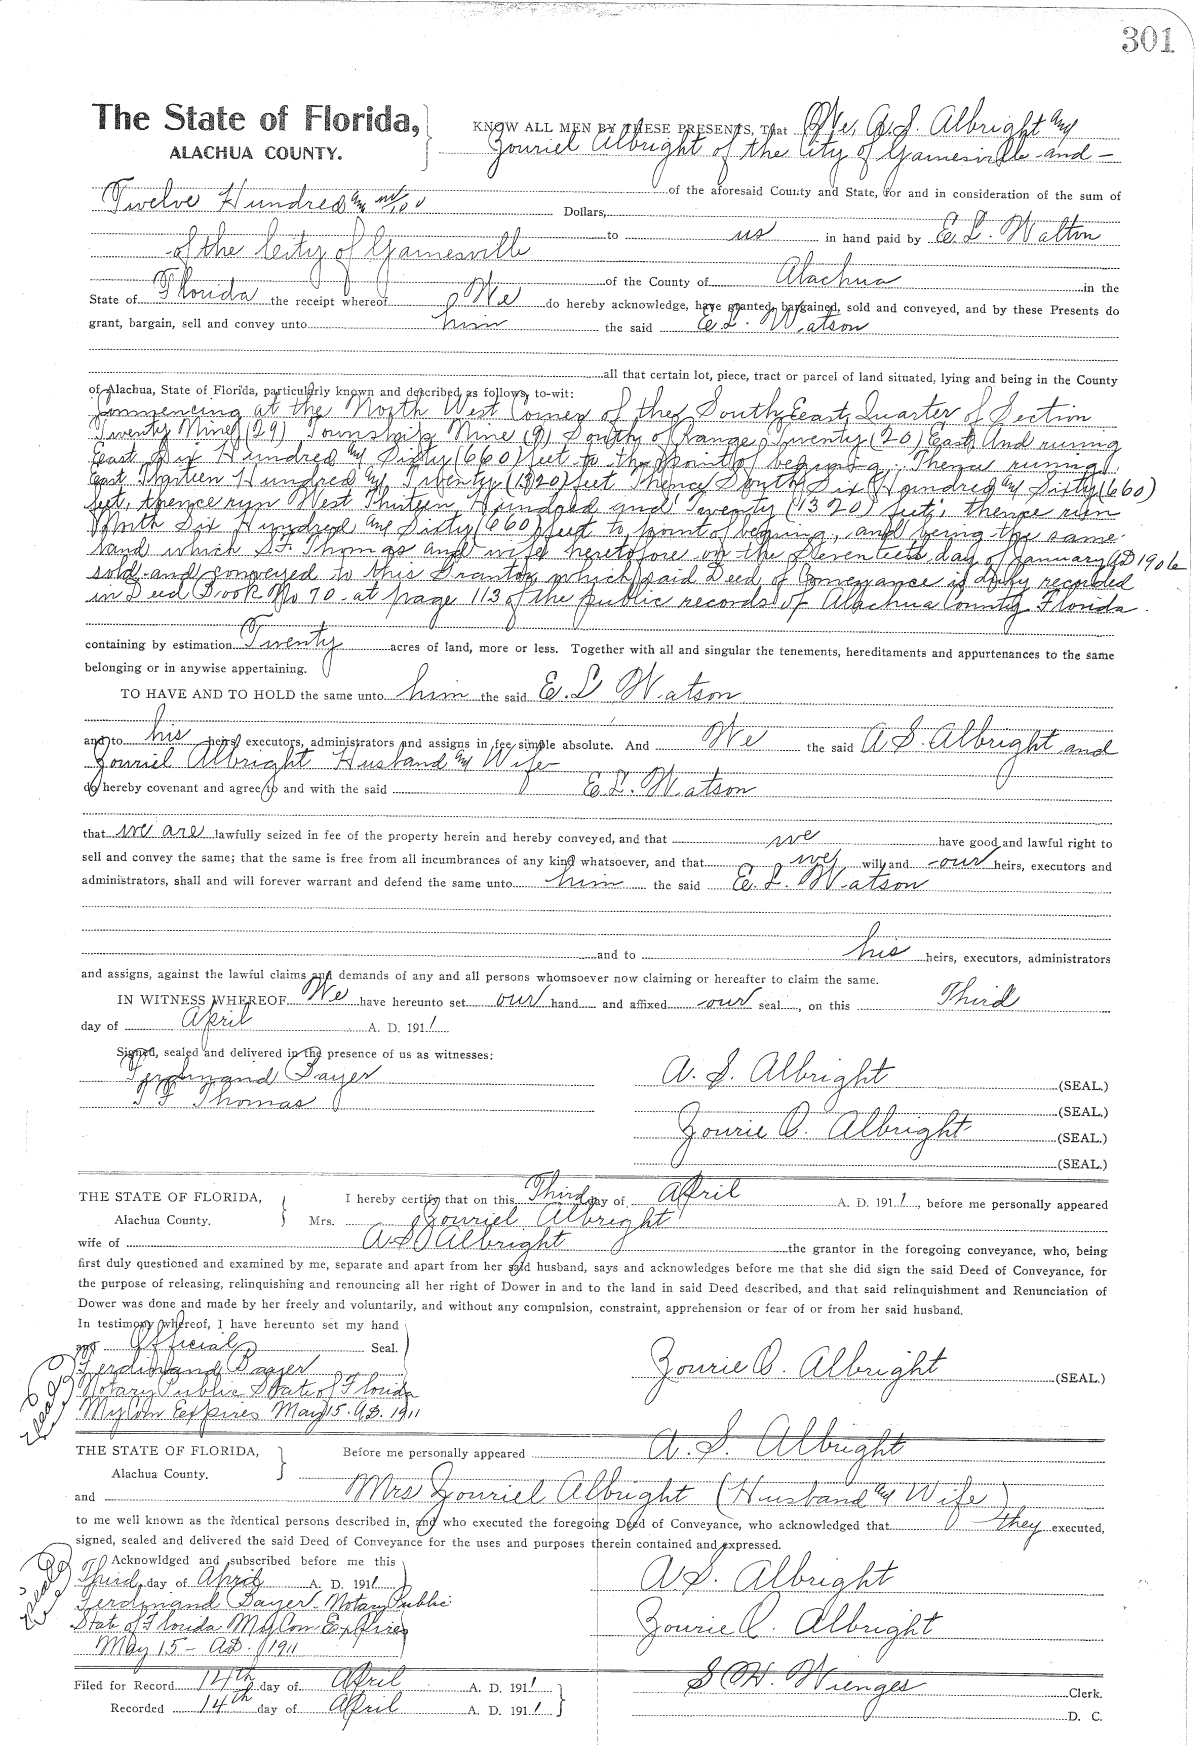 301
The State of Florida,
ALACHUA COUNTY.
KNOW ALL MEN BY THESE PRESENTS, That We, A. S. Albright and
Zouriel Albright of the City of Gainesville and -
of the aforesaid County and State, for and in consideration of the sum of
Twelve Hundred and no/100 Dollars,
to us in hand paid by E. L. Walton
of the City of Gainesville
of the County of Alachua in the
State of Florida the receipt whereof We do hereby acknowledge, have granted, bargained, sold and conveyed, and by these Presents do
grant, bargain, sell and convey unto him the said E. L. Watson
all that certain lot, piece, tract or parcel of land situated, lying and being in the County
of Alachua, State of Florida, particularly known and described as follows, to-wit:
Commencing at the North West Corner of the South East Quarter of Section
Twenty Nine (29) Township Nine (9) South of Range Twenty (20) East, And runing
East Six Hundred and Sixty (660) feet to the point of begining; Thence runing
East Thirteen Hundred and Twenty (1320) feet Thence South Six Hundred and Sixty (660)
feet, thence run West Thirteen Hundred and Twenty (1320) feet, thence run
North Six Hundred and Sixty (660) feet to point of begining, and being the same
land which S.F. Thomas and wife heretofore on the Eleventh day of January AD 1906
sold and conveyed to this Grantor which said Deed of Conveyance is duly recorded
in Deed Book No 70 at page 113 of the public records of Alachua County Florida.
containing by estimation Twenty acres of land, more or less. Together with all and singular the tenements, hereditaments and appurtenances to the same
belonging or in anywise appertaining.
TO HAVE AND TO HOLD the same unto him the said E. L Watson
and to his heirs, executors, administrators and assigns in fee simple absolute. And We the said A S. Albright and
Zouriel Albright Husband and Wife
do hereby covenant and agree to and with the said E. L. Watson
that we are lawfully seized in fee of the property herein and hereby conveyed, and that we have good and lawful right to
sell and convey the same; that the same is free from all incumbrances of any kind whatsoever, and that we will and our heirs, executors and
administrators, shall and will forever warrant and defend the same unto him the said E. L. Watson
and to his heirs, executors, administrators
and assigns, against the lawful claims and demands of any and all persons whomsoever now claiming or hereafter to claim the same.
IN WITNESS WHEREOF We have hereunto set our hand and affixed our seal, on this Third
day of April A. D. 1911.
Signed, sealed and delivered in the presence of us as witnesses:
Ferdinand Bayer
A. S. Albright (SEAL.)
T F Thomas
(SEAL.)
Zourie O. Albright (SEAL.)
(SEAL.)
THE STATE OF FLORIDA, I hereby certify that on this Third day of April A. D. 1911, before me personally appeared
Alachua County. Mrs. Zouriel Albright
wife of A S. Albright the grantor in the foregoing conveyance, who, being
first duly questioned and examined by me, separate and apart from her said husband, says and acknowledges before me that she did sign the said Deed of Conveyance, for
the purpose of releasing, relinquishing and renouncing all her right of Dower in and to the land in said Deed described, and that said relinquishment and Renunciation of
Dower was done and made by her freely and voluntarily, and without any compulsion, constraint, apprehension or fear of or from her said husband.
In testimony whereof, I have hereunto set my hand
and Official Seal.
Ferdinand Bayer
Zourie O. Albright (SEAL.)
Notary Public State of Florida
My Com Expires May 15. AD. 1911
Seal
THE STATE OF FLORIDA, Before me personally appeared A. S. Albright
Alachua County.
and Mrs Zouriel Albright (Husband and Wife)
to me well known as the identical persons described in, and who executed the foregoing Deed of Conveyance, who acknowledged that they executed,
signed, sealed and delivered the said Deed of Conveyance for the uses and purposes therein contained and expressed.
Acknowldged and subscribed before me this
Third day of April A. D. 1911
A S. Albright
Ferdinand Bayer Notary Public
State of Florida My Com Expires
Zourie O. Albright
May 15 - AD. 1911
Seal
Filed for Record 14th day of April A. D. 1911
S H. Wienges Clerk.
Recorded 14th day of April A. D. 1911
D. C.